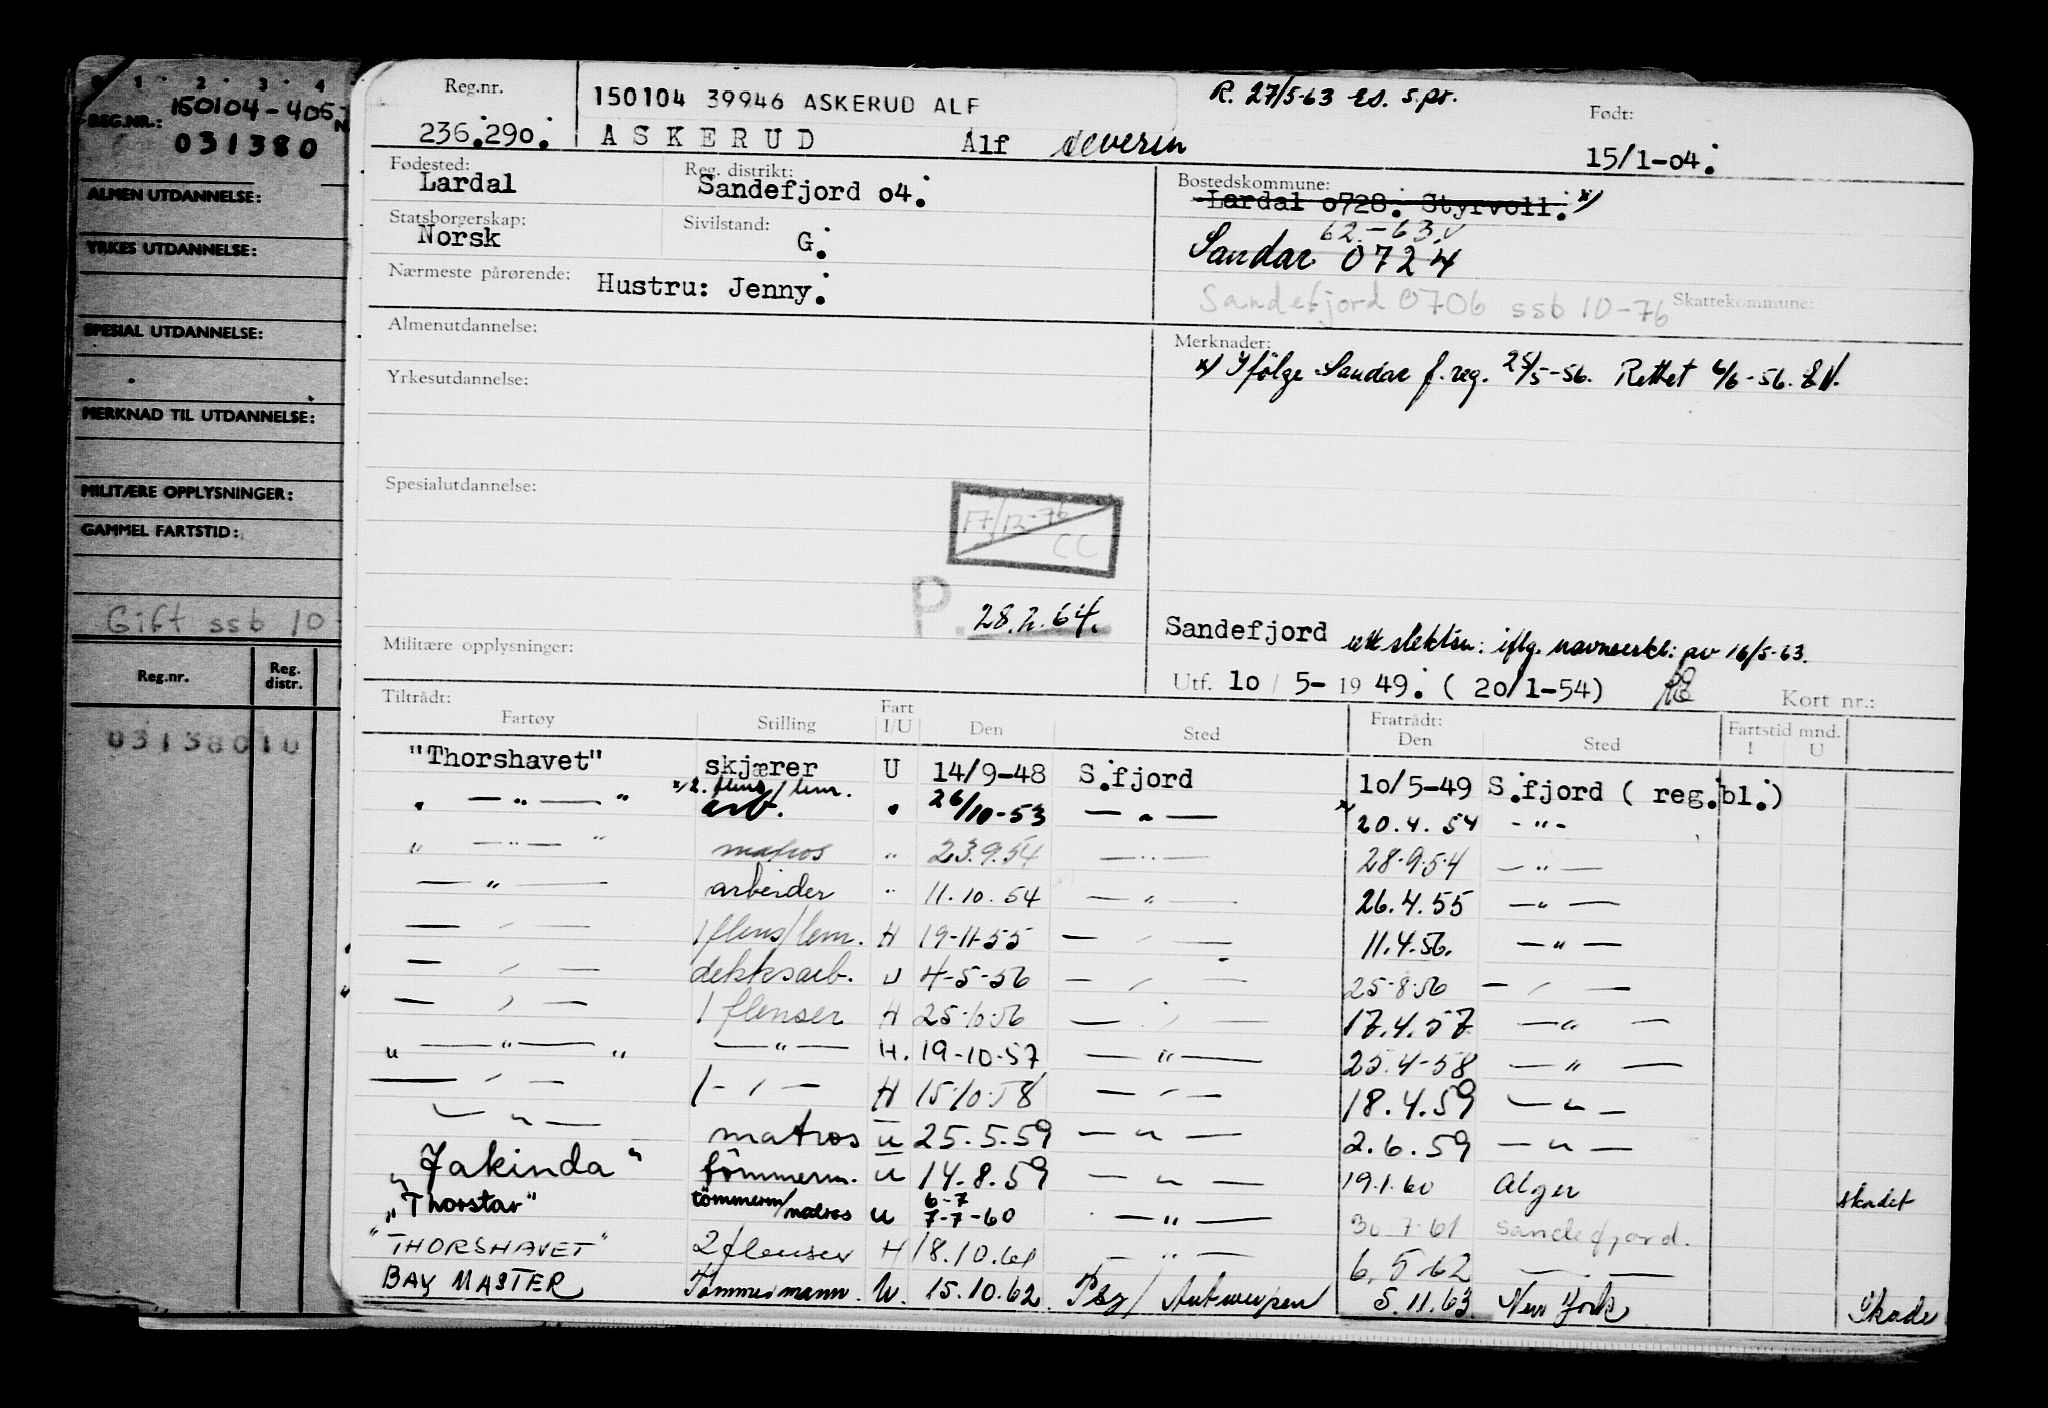 0 1 2 3 4
REG.NR.: 150104-405
031380
ALMEN UTDANNELSE:
YRKES UTDANNELSE:
SPESIAL UTDANNELSE:
MERKNAD TIL UTDANNELSE:
MILITÆRE OPPLYSNINGER:
GAMMEL FARTSTID:
Gift ssb 10
Reg.nr. Reg. distr.
03138010
Reg.nr. 150104 39946 ASKERUD ALF R. 27/5-63 es. s.pr. Født:
236.290. ASKERUD Alf Severin 15/1-04.
Fødested: Reg. distrikt: Bostedskommune:
Lardal Sandefjord 04. Lardal 0728. Styrvoll. x)
Statsborgerskap: Sivilstand: 62.-63.
Norsk G. Sandar 0724
Nærmeste pårørende: Hustru: Jenny. Sandefjord 0706 ssb 10-76 Skattekommune:
Almenutdannelse: Merknader:
x) Ifølge Sandar f.reg. 25/5-56. Rettet 6/6-56. EN.
Yrkesutdannelse:
Spesialutdannelse:
17/12-76
CC
P. 28.2.64.
Sandefjord ett slektsn: iflg. navneerkl: av 16/5-63.
Militære opplysninger:
Utf. 10/5-1949. (20/1-54) Kort nr.:
Tiltrådt: Fratrådt:
Fartøy Stilling Fart I/U Den Sted Den Sted Fartstid mnd. I U
"Thorshavet" skjærer U 14/9-48 S.fjord 10/5-49 S.fjord ( reg.bl.)
" — " — " x/2. flens/lem. arb. " 26/10-53 — " — x 20.4.54 - " -
" — " — " matros " 23.9.54 — " — 28.9.54 — " —
— " — arbeider " 11.10.54 — " — 26.4.55 — " —
— " — 1 flens/lem. H 19-11-55 — " — 11.4.56. — " —
— " — dekksarb. U 4-5-56 — " — 25-8-56 — " —
— " — 1 flenser H 25-10-56 — " — 17.4.57 — " —
" — " — " — " — H. 19-10-57 — " — 25.4-58 — " —
— " — 1 - " — H 15-10-58 — " — 18.4.59 — " —
— " — matros U 25.5.59 — " — 2.6.59 — " —
"Jakinda" tømmerm. U 14.8.59 — " — 19.1.60 Alger skadet
"Thorstar" tømmerm/matros U 6-7 7-7-60 — " — 30.7.61 Sandefjord.
"THORSHAVET" 2 flenser H 18.10.61 — " — 6.5.62 — " —
BAY MASTER Tømmermann. U. 15.10.62. Psg/Antwerpen 5.11.63. New York Skade